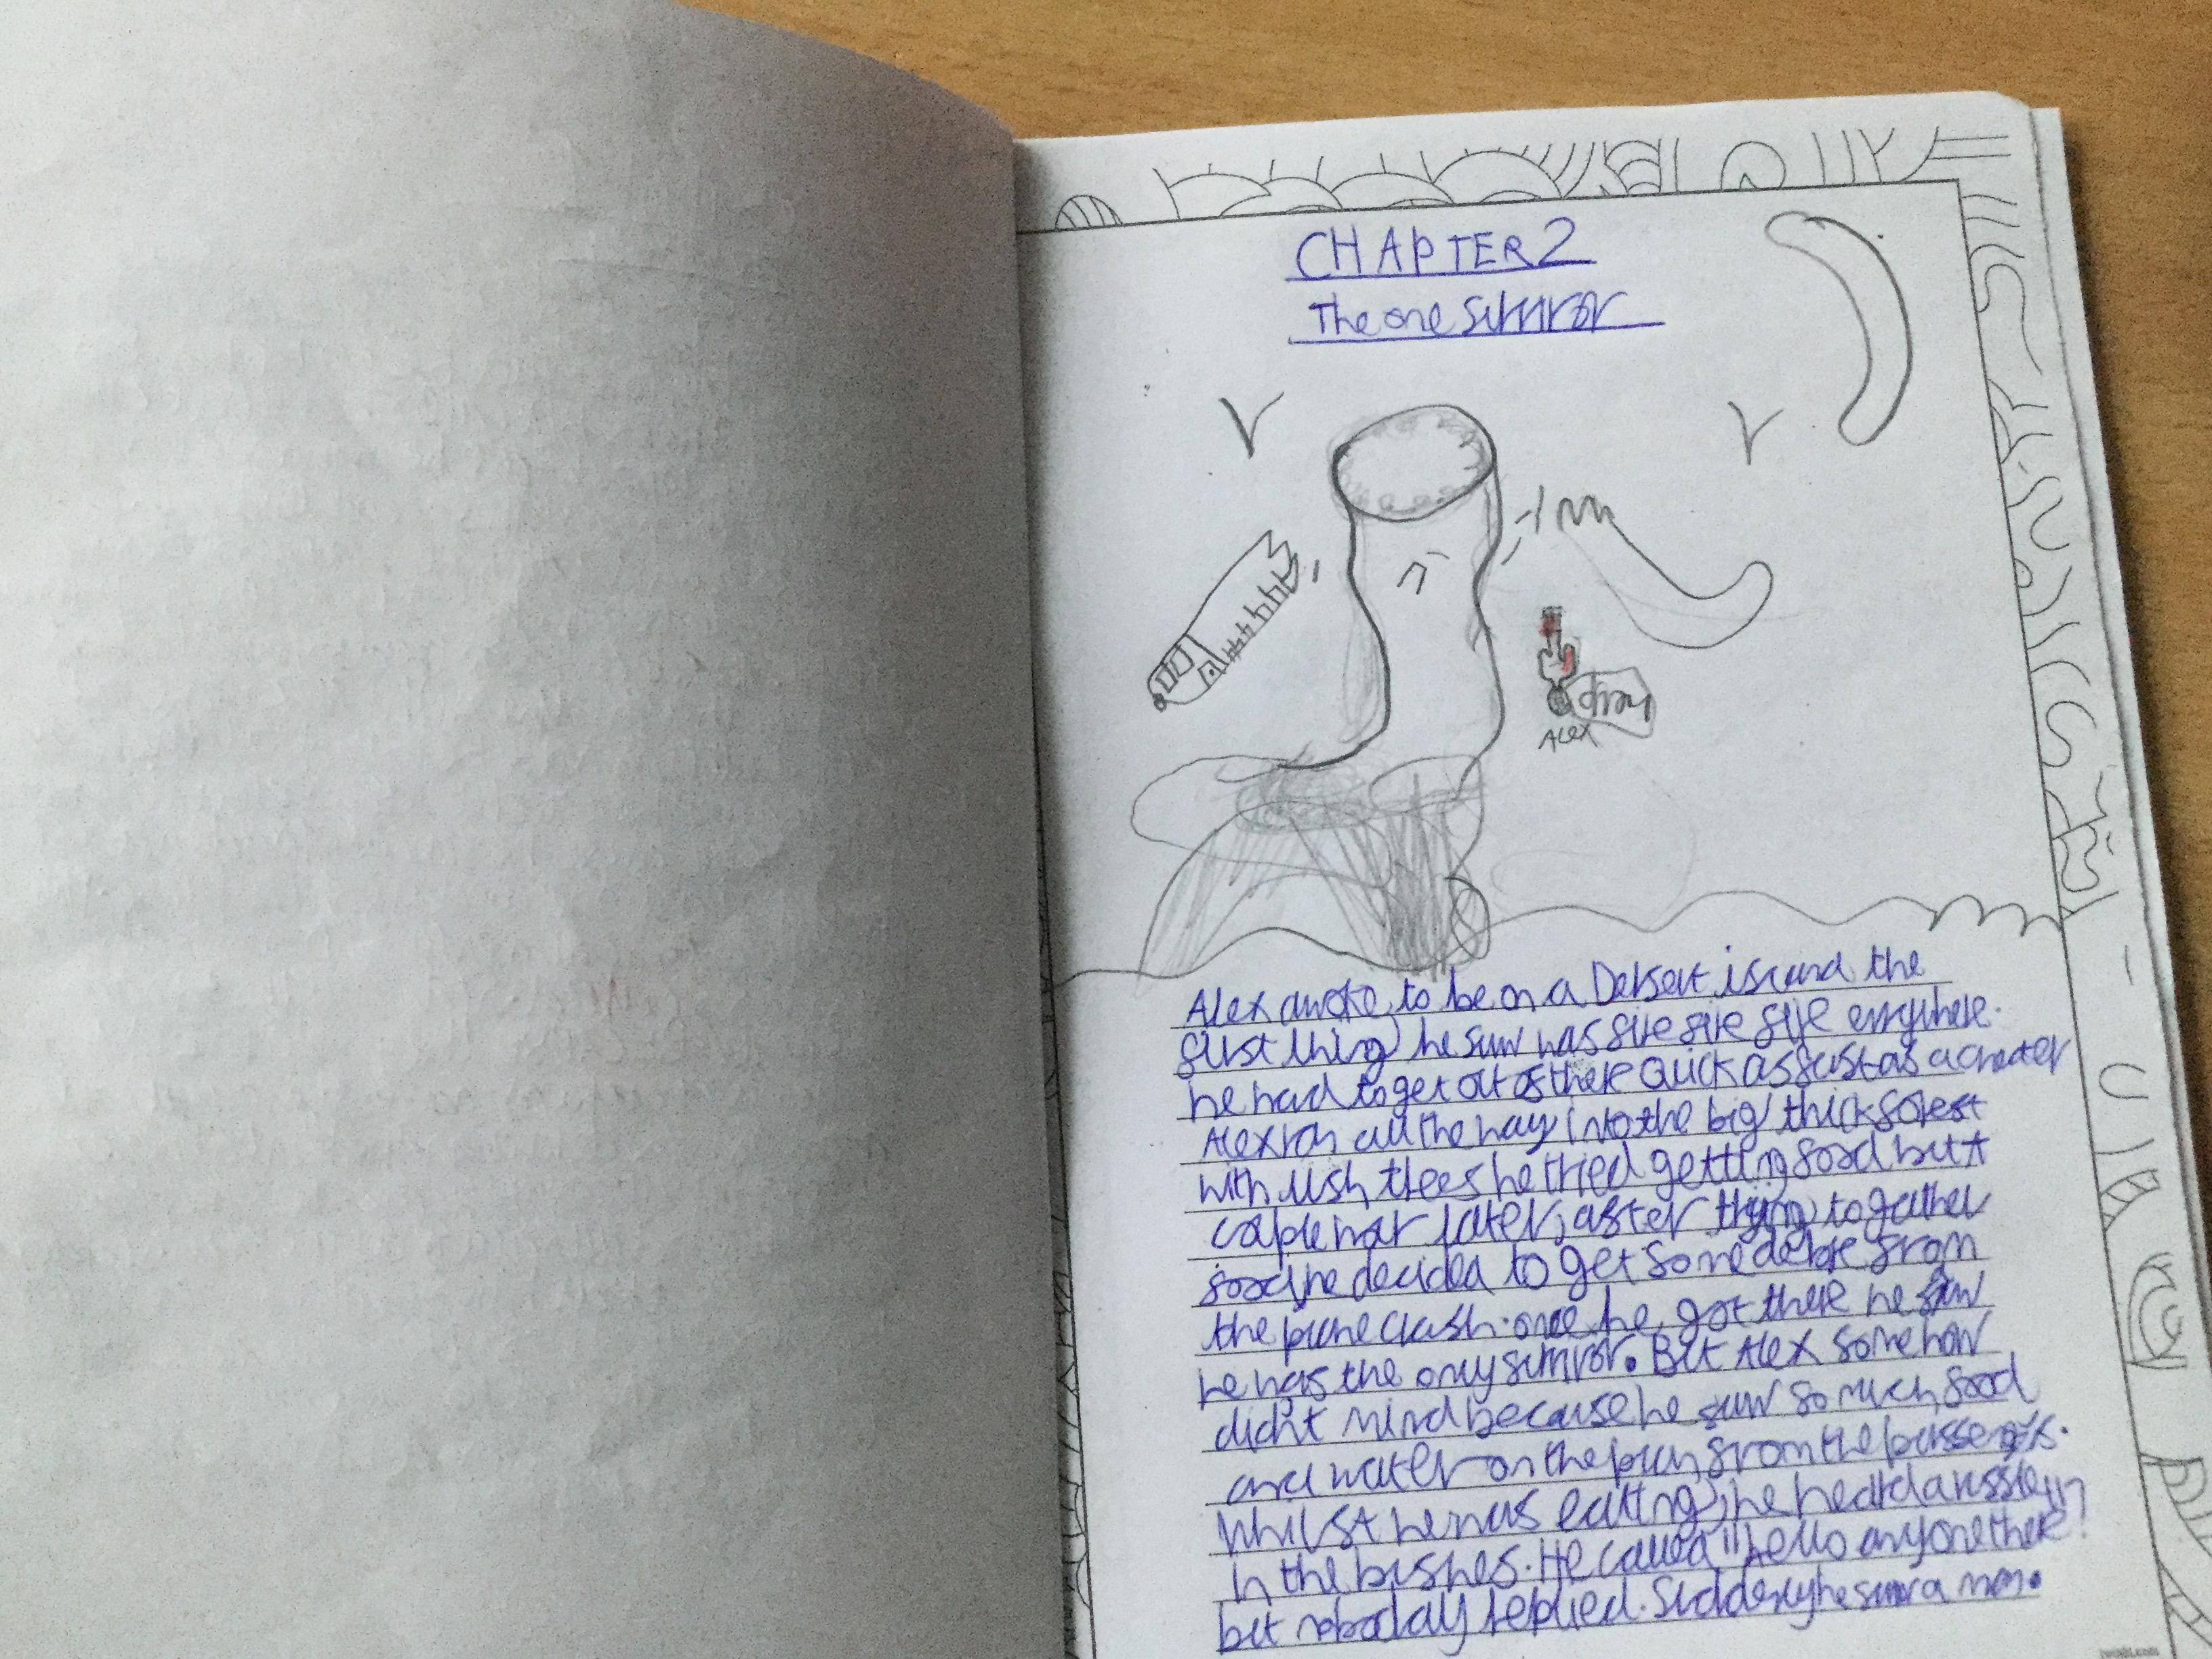 CHAPTER 2
The one surviror
Alex
Alex awoke, to be on a Detsert island the
first thing he saw was fire fire fire everywhere.
he had to get out of there Quick as fast as a cheater
Alex ran all the way into the big thick forest
with lush trees he tried getting food but a
cople hour later, after trying to gather
food he decided to get some debre from
the plane crash. once he got there he saw
he was the only surviror. But Alex somehow
didn't mind because he saw so much food
and water on the plan from the passengers.
Whilst he was eating, he heard a russle in
in the bushes. He called "hello anyone there?
but nobody replied. Suddenly he saw a man.